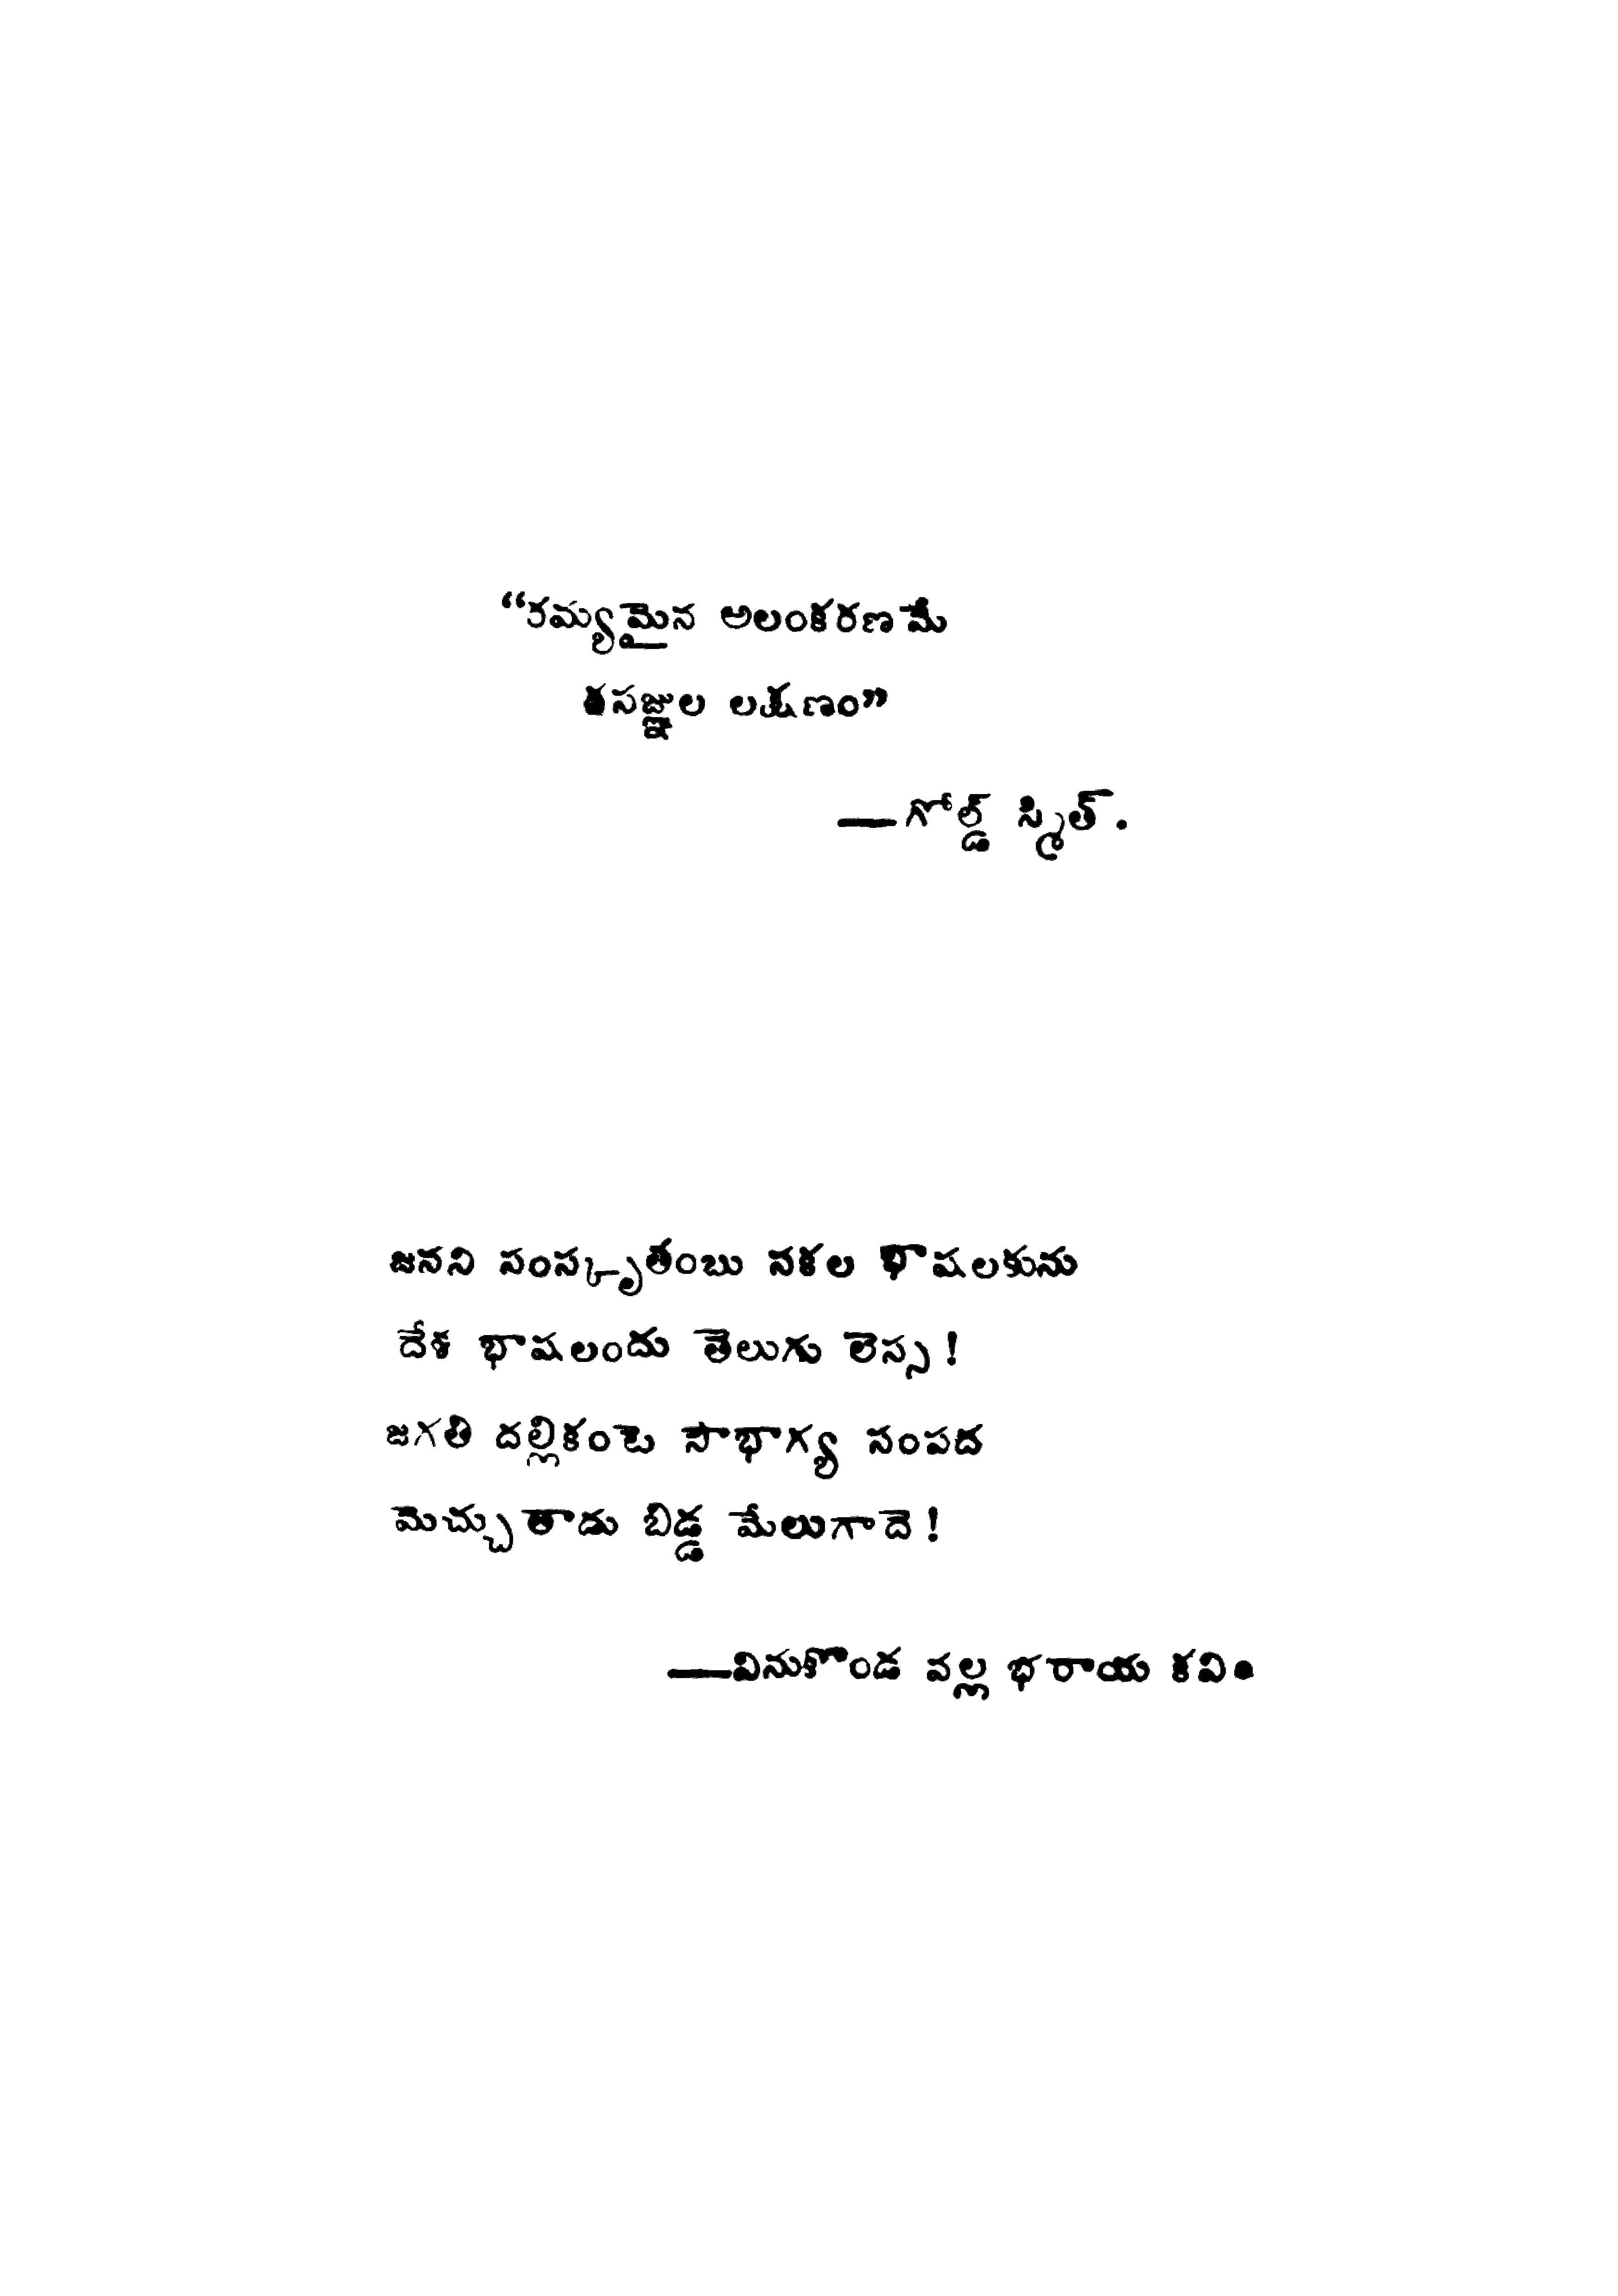 “రమ్యమైన అలంకరణమే
రసజ్ఞుల లక్షణం”
—గోల్డ్ స్మిత్.
జనని సంస్కృతంబు సకల భాషలకును
దేశ భాషలందు తెలుగు లెస్స!
జగతి దల్లికంటె సౌభాగ్య సంపద
మెచ్చుతాడు బిడ్డ మేలుగాదె!
—వినుకొండ వల్ల భరాయ కవి.